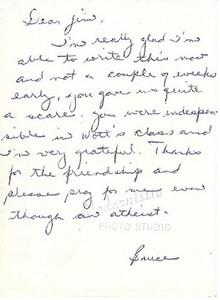 Dear Jim,
I'm really glad I'm
able to write this now
and not a couple of weeks
early, you gave us quite
a scare. you were indespen-
sible in Wott's class and
I'm very grateful. Thanks
for the friendship and
please pray for me even
though an atheist.
Modernistic
PHOTO STUDIO
Bruce